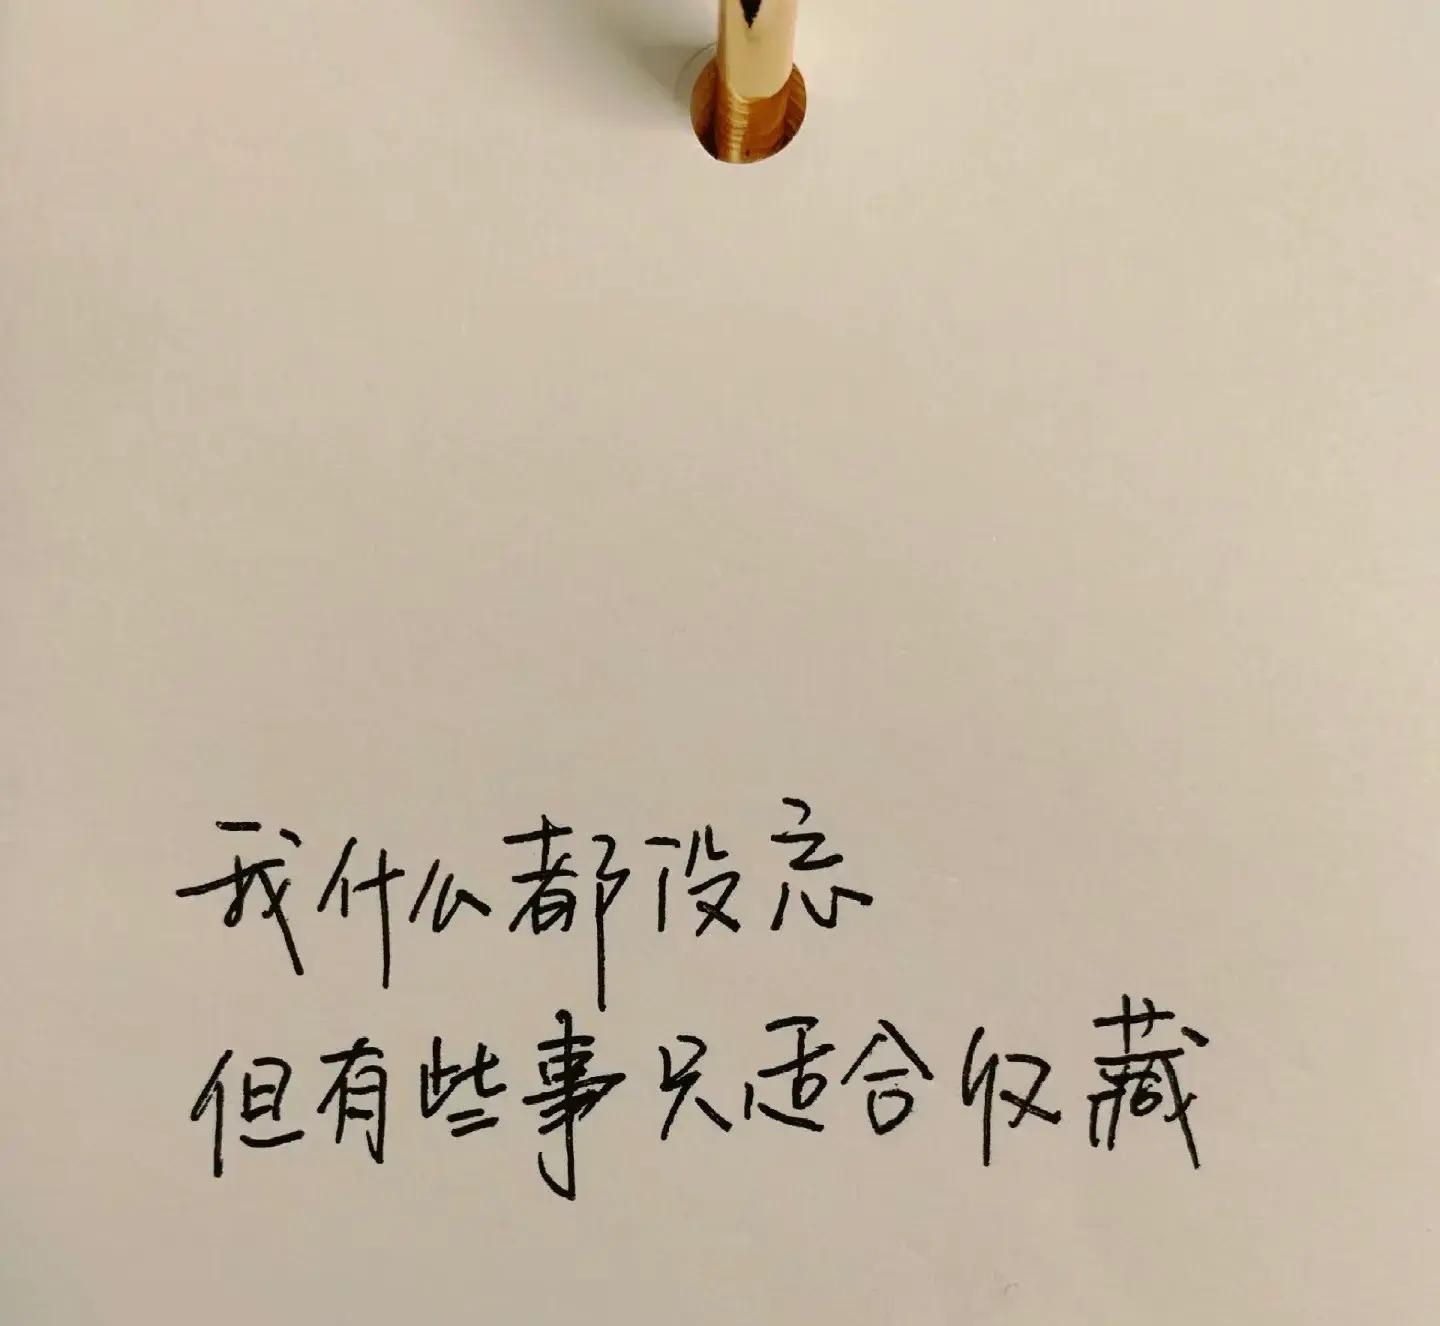 我什么都没忘
但有些事只适合收藏